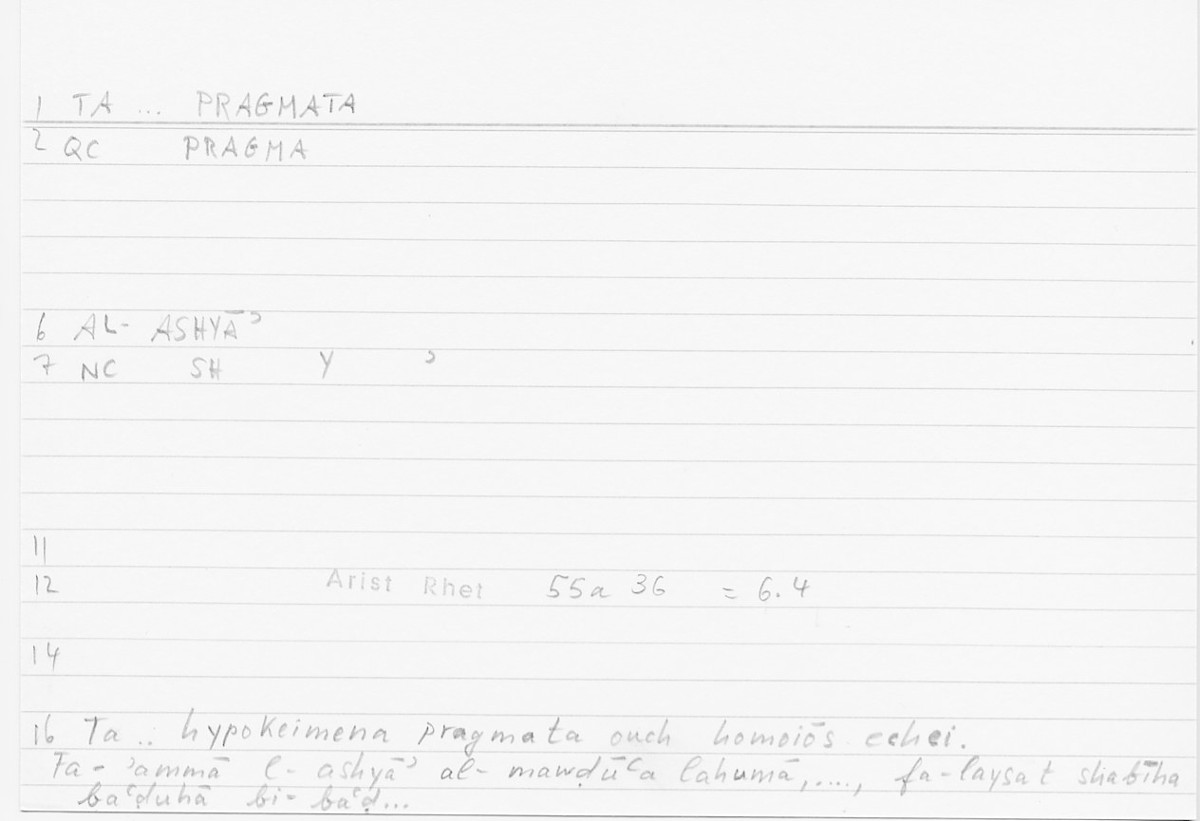 1 TA ... PRAGMATA
2 QC PRAGMA
6 AL- ASHYĀʾ
7 NC SH Y ʾ
11
12 Arist Rhet 55a 36 = 6.4
14
16 Ta .. hypokeimena pragmata ouch homoiōs echei.
Fa-ʾammā l-ashyāʾ al-mawḍūʿa lahumā,...., fa-laysat shabīha
baʿḍuhā bi-baʿḍ...